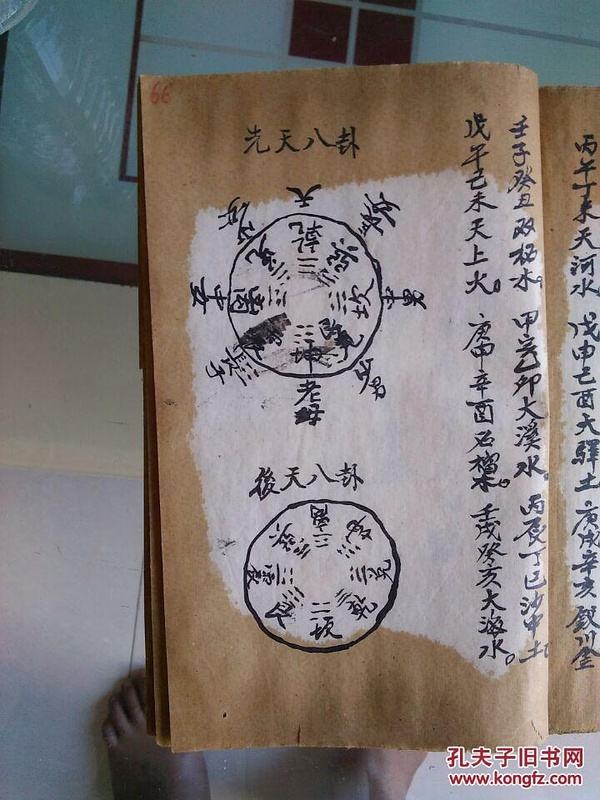 丙午丁未天河水。戊申己酉大驛土。庚戌辛亥釵川金
壬子癸丑双柘木。甲寅乙卯大溪水。丙辰丁巳沙中土。
戊午己未天上火。庚申辛酉石榴木。壬戌癸亥大海水。
66
先天八卦
天
乾
兑
離
中女
長子
坤
老母
中男
後天八卦
離
兑
乾
坎
孔夫子旧书网
www.kongfz.com